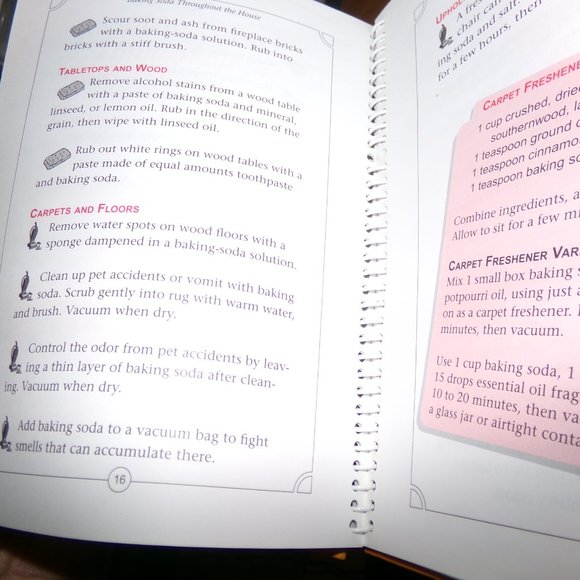 Baking Soda Throughout the House
Scour soot and ash from fireplace bricks
with a baking-soda solution. Rub into
bricks with a stiff brush.
TABLETOPS AND WOOD
Remove alcohol stains from a wood table
with a paste of baking soda and mineral,
linseed, or lemon oil. Rub in the direction of the
grain, then wipe with linseed oil.
Rub out white rings on wood tables with a
paste made of equal amounts toothpaste
and baking soda.
CARPETS AND FLOORS
Remove water spots on wood floors with a
sponge dampened in a baking-soda solution.
Clean up pet accidents or vomit with baking
soda. Scrub gently into rug with warm water,
and brush. Vacuum when dry.
Control the odor from pet accidents by leav-
ing a thin layer of baking soda after clean-
ing. Vacuum when dry.
Add baking soda to a vacuum bag to fight
smells that can accumulate there.
16
UPHOL
A fres
chair can
ing soda and salt.
for a few hours, then
CARPET FRESHENE
1 cup crushed, drie
southernwood, la
1 teaspoon ground c
1 teaspoon cinnamo
1 teaspoon baking so
Combine ingredients, a
Allow to sit for a few mi
CARPET FRESHENER VAR
Mix 1 small box baking s
potpourri oil, using just a
on as a carpet freshener.
minutes, then vacuum.
Use 1 cup baking soda, 1
15 drops essential oil frag
10 to 20 minutes, then va
a glass jar or airtight conta